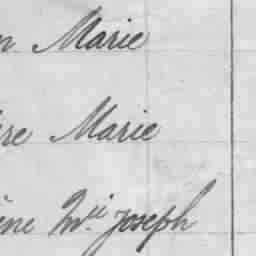 n Marie
re Marie
ène Mie Joseph